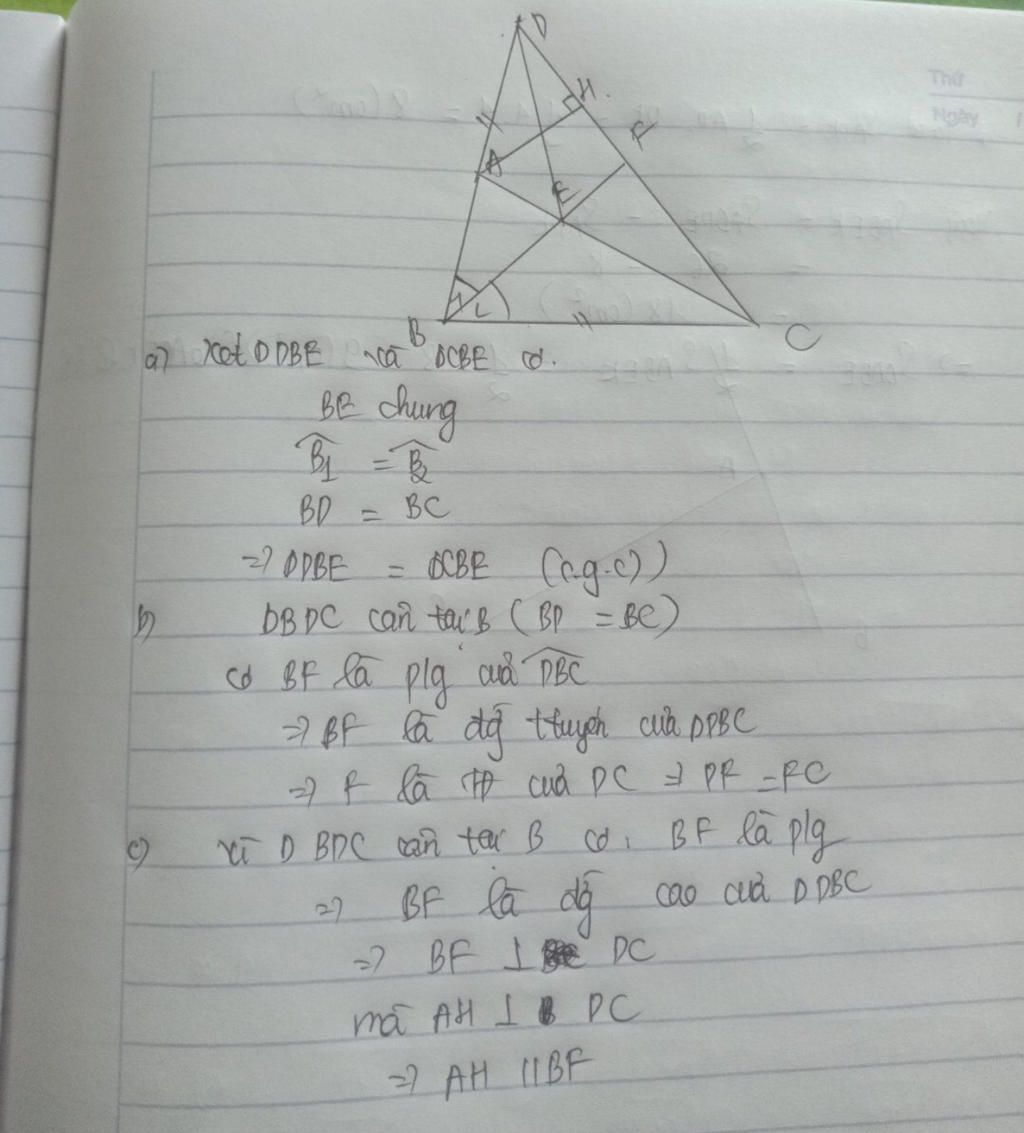 Thứ
Ngày
D
H
F
A
E
B
1
2
C
a) Xét ΔDBE và ΔCBE có.
BE chung
B̂1 = B̂2
BD = BC
=> ΔDBE = ΔCBE (c.g.c)
b) ΔBDC cân tại B (BD = BC)
có BF là p/g của DBC
=> BF là đg t tuyến của ΔDBC
=> F là TĐ của DC => DF = FC
c) Vì Δ BDC cân tại B có. BF là p/g
=> BF là đg cao của ΔDBC
=> BF ⊥ DC
mà AH ⊥ DC
=> AH // BF